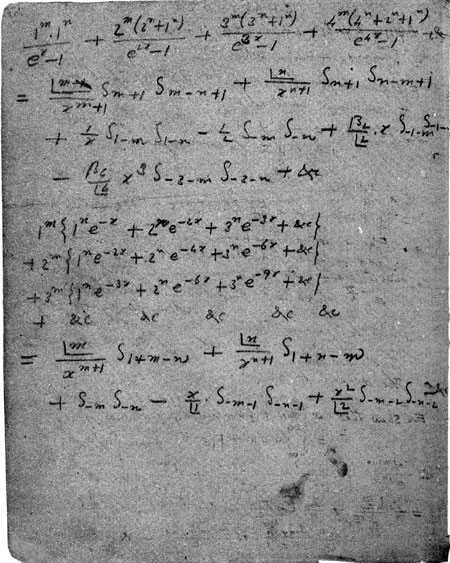 1^m·1^n/(e^x-1) + 2^m(2^n+1^n)/(e^{2x}-1) + 3^m(3^n+1^n)/(e^{3x}-1) + 4^m(4^n+2^n+1^n)/(e^{4x}-1) + &c
= /x^{m+1} S_{m+1} S_{m-n+1} + |n/x^{n+1} S_{n+1} S_{n-m+1}
+ 1/x S_{1-m} S_{1-n} - 1/2 S_{-m} S_{-n} + B_2/|2 · x S_{-1-m} S_{-1-n}
- /|4 x^3 S_{-3-m} S_{-3-n} + &c
1^m {1^n e^{-x} + 2^n e^{-2x} + 3^n e^{-3x} + &c}
+ 2^m {1^n e^{-2x} + 2^n e^{-4x} + 3^n e^{-6x} + &c}
+ 3^m {1^n e^{-3x} + 2^n e^{-6x} + 3^n e^{-9x} + &c}
+ &c &c &c &c &c
= |m/x^{m+1} S_{1+m-n} + |n/x^{n+1} S_{1+n-m}
+ S_{-m} S_{-n} - x/|1 · S_{-m-1} S_{-n-1} + x^2/|2 S_{-m-2} S_{-n-2} &c